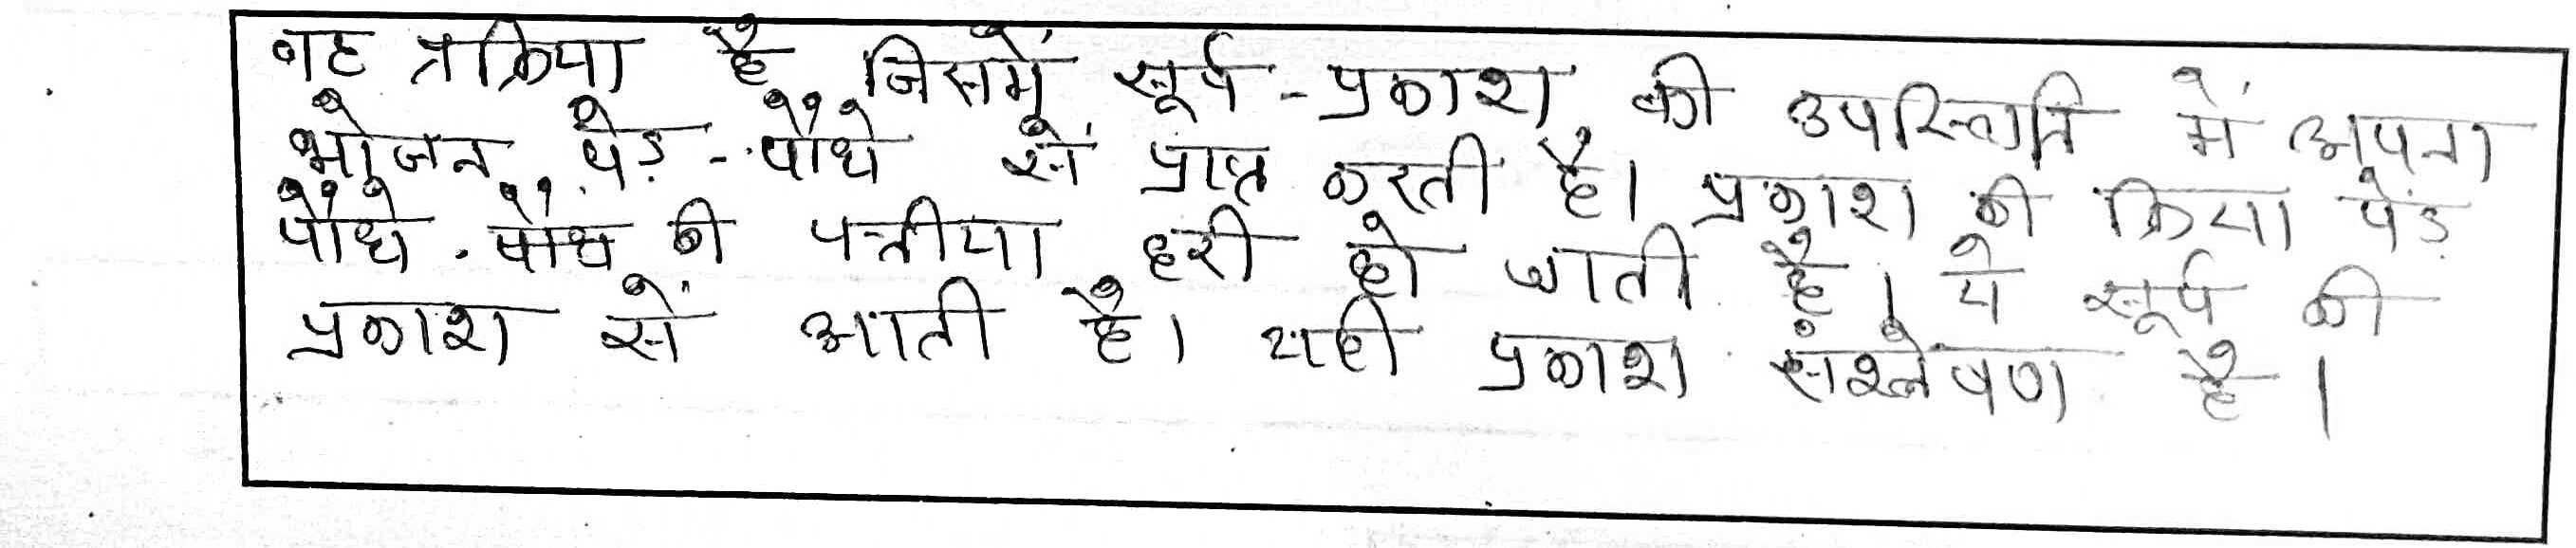 वह प्रक्रिया है जिसमें सूर्य - प्रकाश की उपस्थिति में अपना
भोजन पेड़ - पौधे से प्राप्त करती है। प्रकाश की क्रिया पेड़
पौधे की पत्तीया हरी हो जाती है। ये सूर्य की
प्रकाश सें आती है। यही प्रकाश संश्लेषण है।